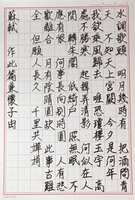 水調歌頭 明月幾時有 把酒問青
天 不知天上宮闕 今夕是何年
我欲乘風歸去 唯恐瓊樓玉宇 高
處不勝寒 起舞弄清影 何似在人
間 轉朱閣 低綺戶 照無眠 不
應有恨 何事長向別時圓 人有悲
歡離合 月有陰晴圓缺 此事古難
全 但願人長久 千里共嬋娟
蘇軾 作此篇兼懷子由